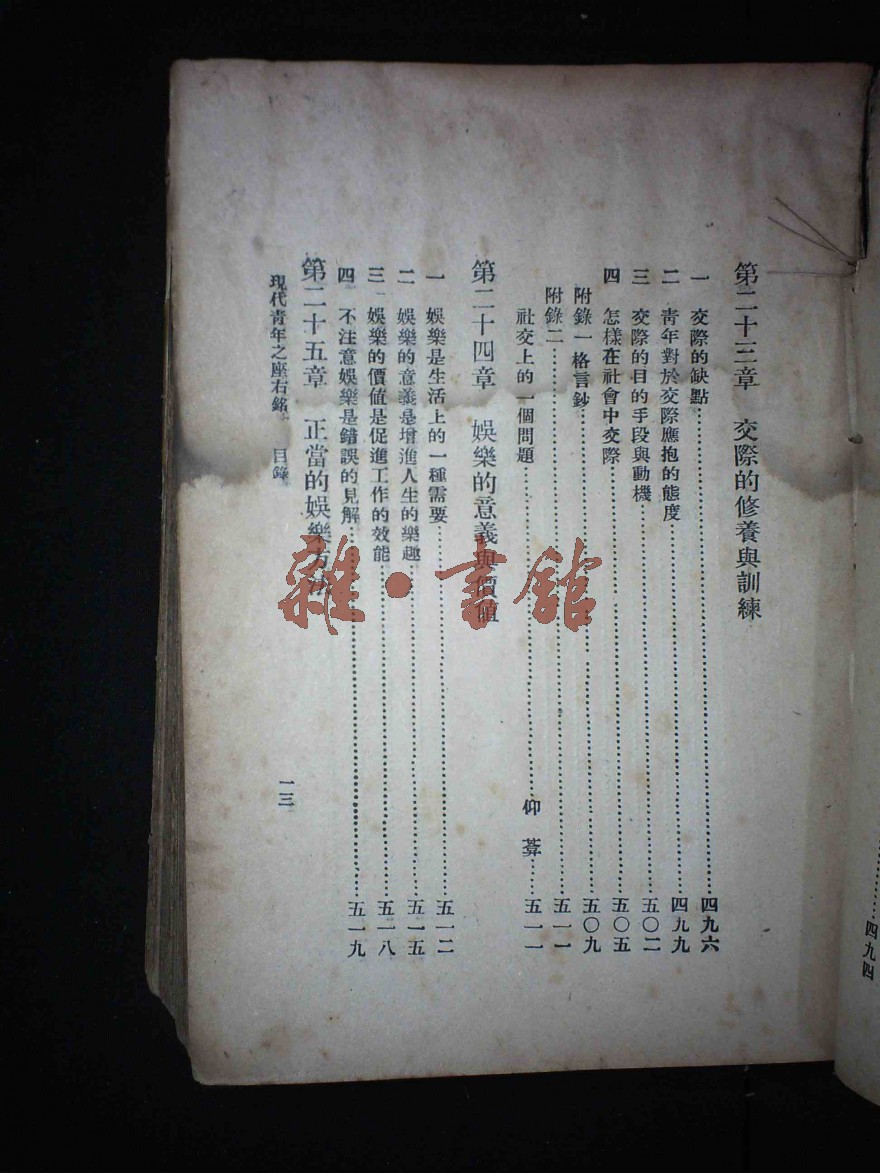 第二十三章　交際的修養與訓練
一　交際的缺點……四九六
二　青年對於交際應抱的態度……四九九
三　交際的目的手段與動機……五〇二
四　怎樣在社會中交際……五〇五
附錄一格言鈔……五〇九
附錄二……五一一
社交上的一個問題……仰葊……五一一
第二十四章　娛樂的意義與價值
一　娛樂是生活上的一種需要……五一二
二　娛樂的意義是增進人生的樂趣……五一五
三　娛樂的價值是促進工作的效能……五一八
四　不注意娛樂是錯誤的見解……五一九
第二十五章　正當的娛樂方法
現代青年之座右銘　目錄　一三
四九四
雜·書館